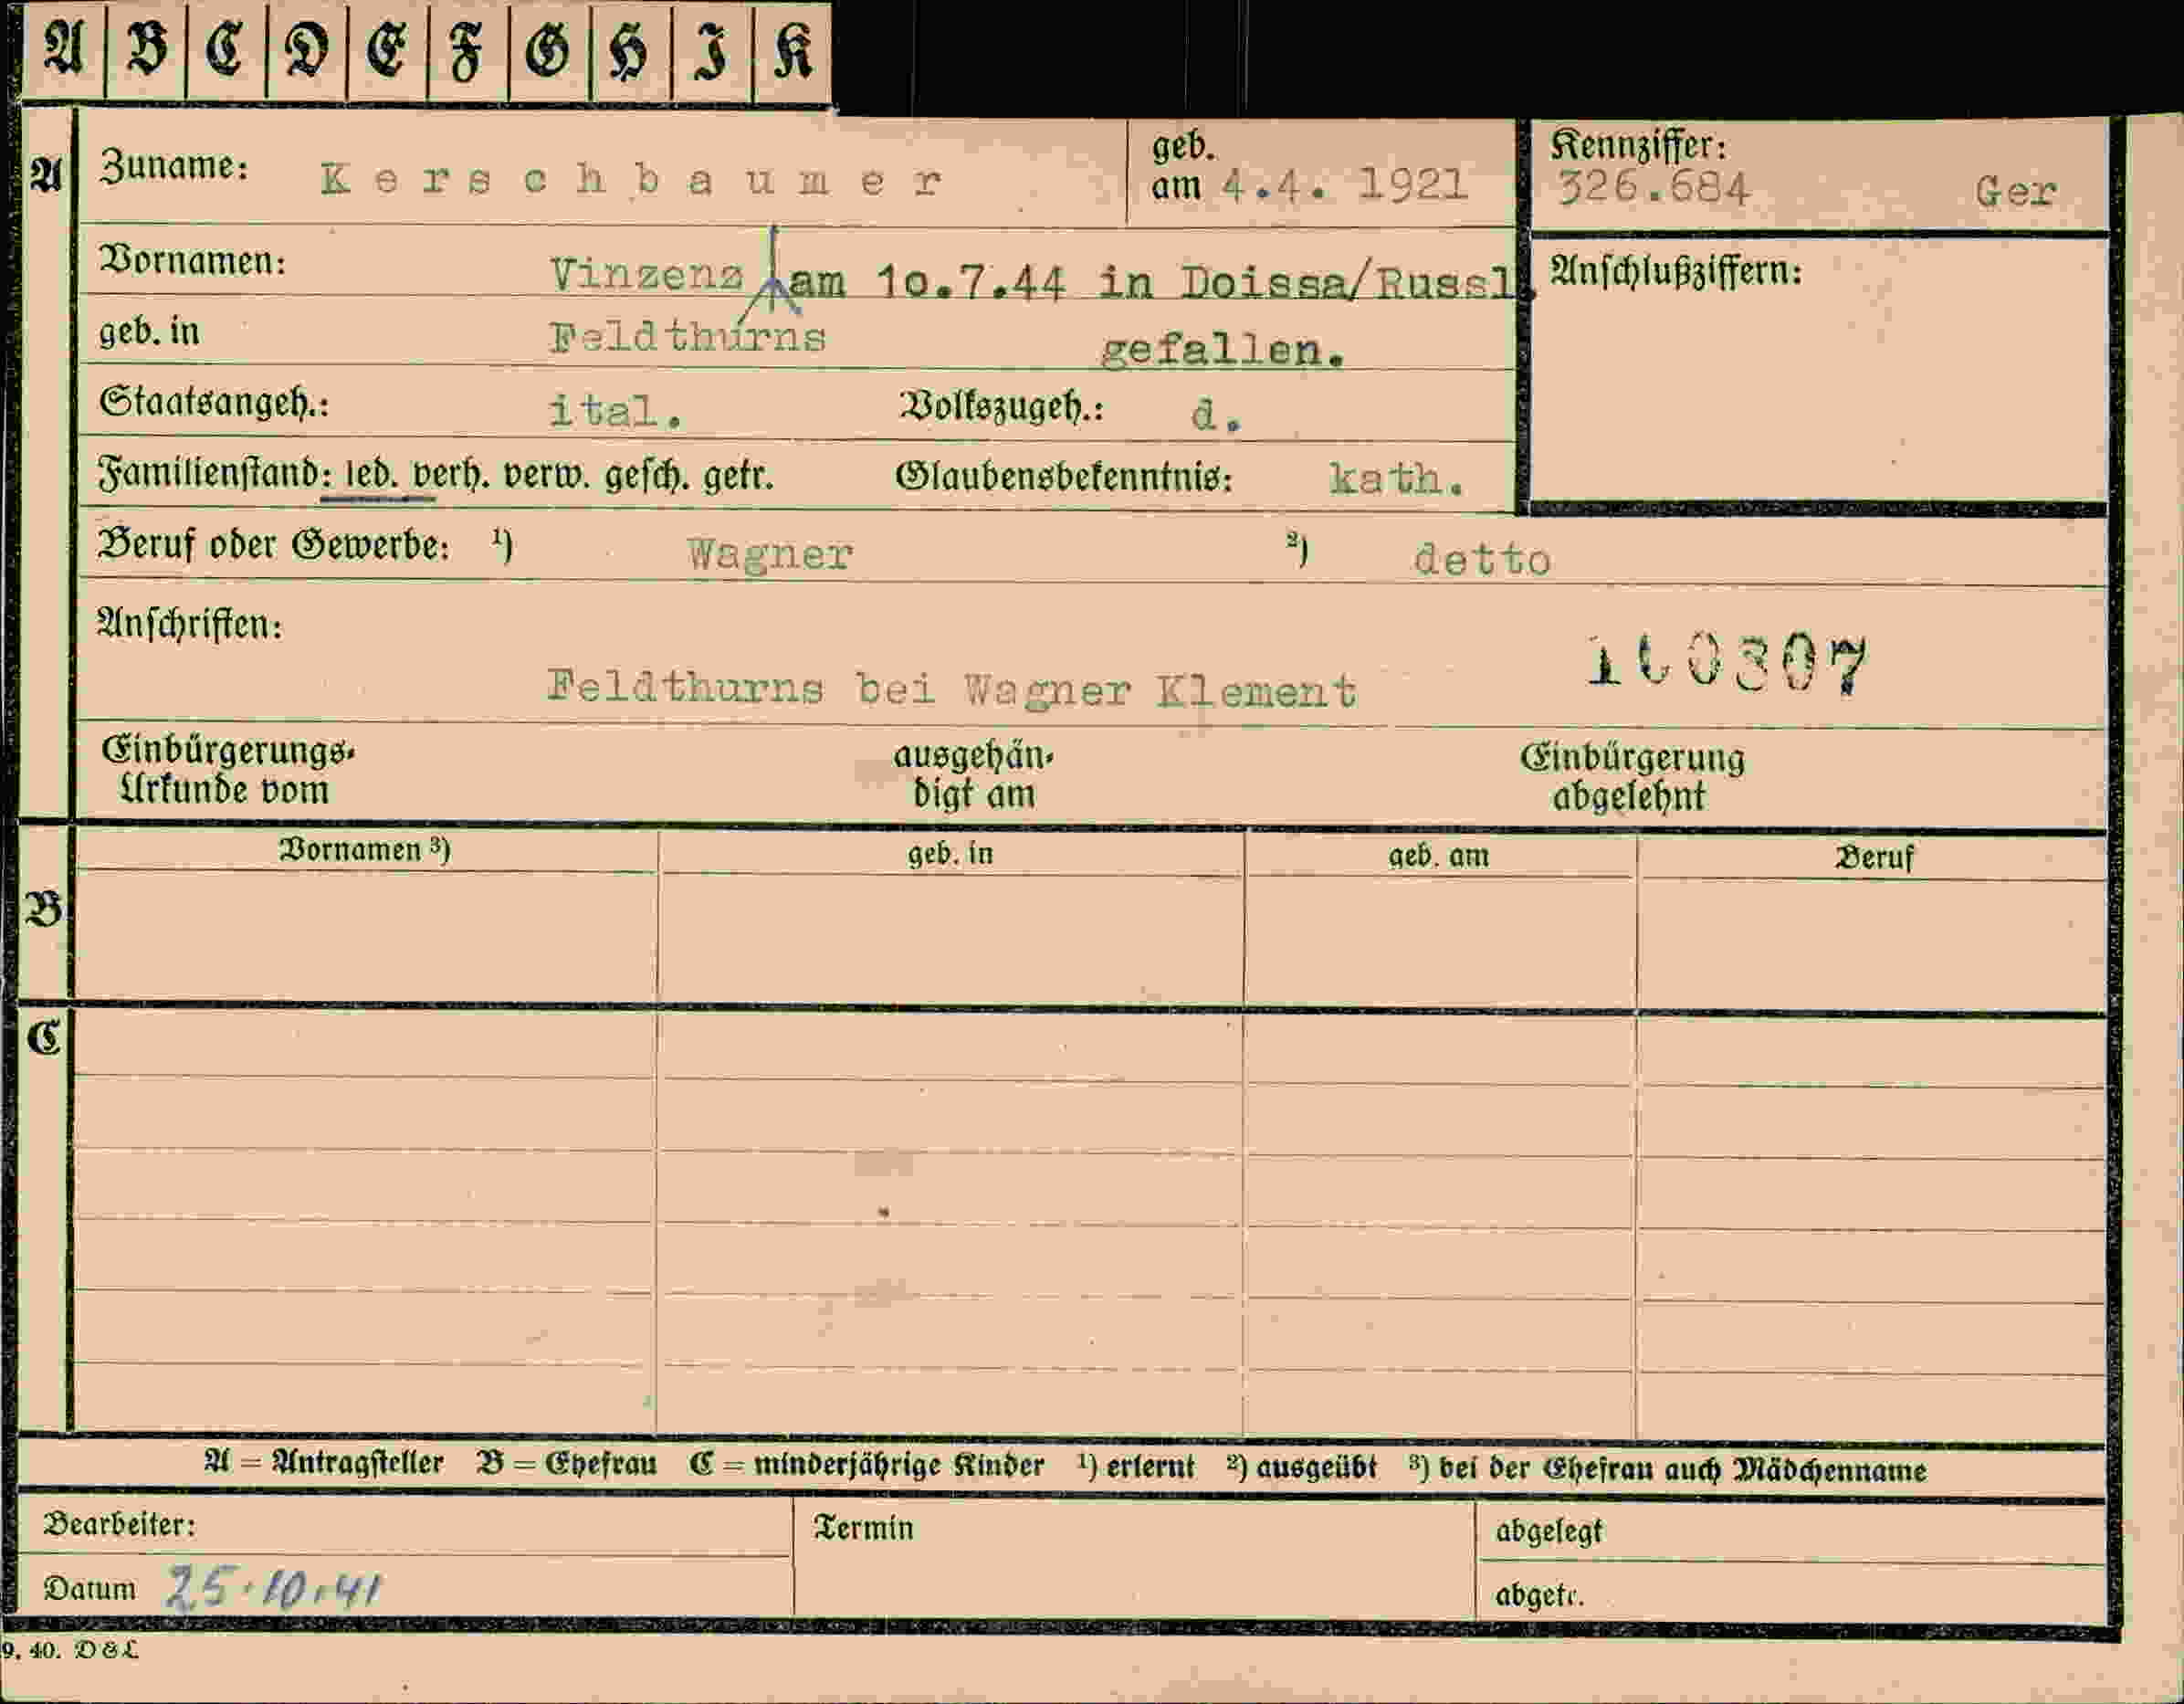 A B C D E F G H I K
A Zuname: Kerschbaumer geb. am 4.4. 1921 Kennziffer: 326.684 Ger
Vornamen: Vinzenz am 10.7.44 in Doissa/Russl. Anschlußziffern:
geb. in Feldthurns gefallen.
Staatsangeh.: ital. Volkszugeh.: d.
Familienstand: led. verh. verw. gesch. getr. Glaubensbekenntnis: kath.
Beruf oder Gewerbe: ¹) Wagner ²) detto
Anschriften:
Feldthurns bei Wagner Klement
Einbürgerungs- ausgehän- Einbürgerung
Urkunde vom digt am abgelehnt
Vornamen ³) geb. in geb. am Beruf
B
C
A = Antragsteller B = Ehefrau C = minderjährige Kinder ¹) erlernt ²) ausgeübt ³) bei der Ehefrau auch Mädchenname
Bearbeiter: Termin abgelegt
Datum 25.10.41 abgetr.
9. 40. D & L